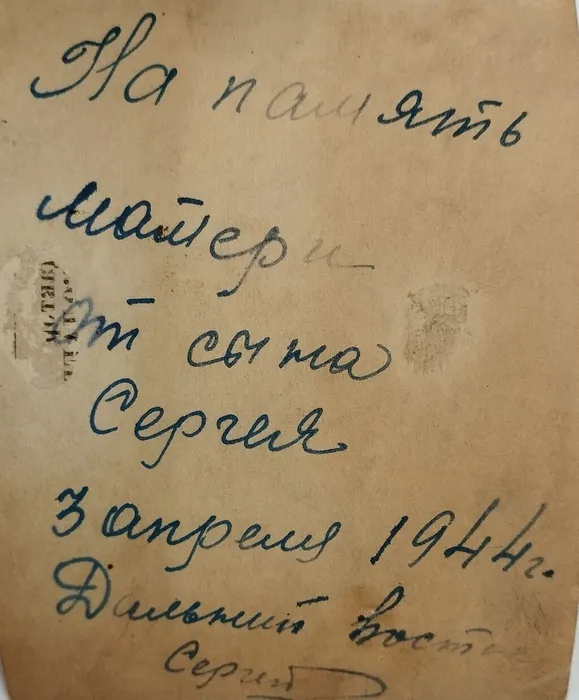 На память
матери
от сына
Сергея
3 апреля 1944 г.
Дальний Восток
Сергей